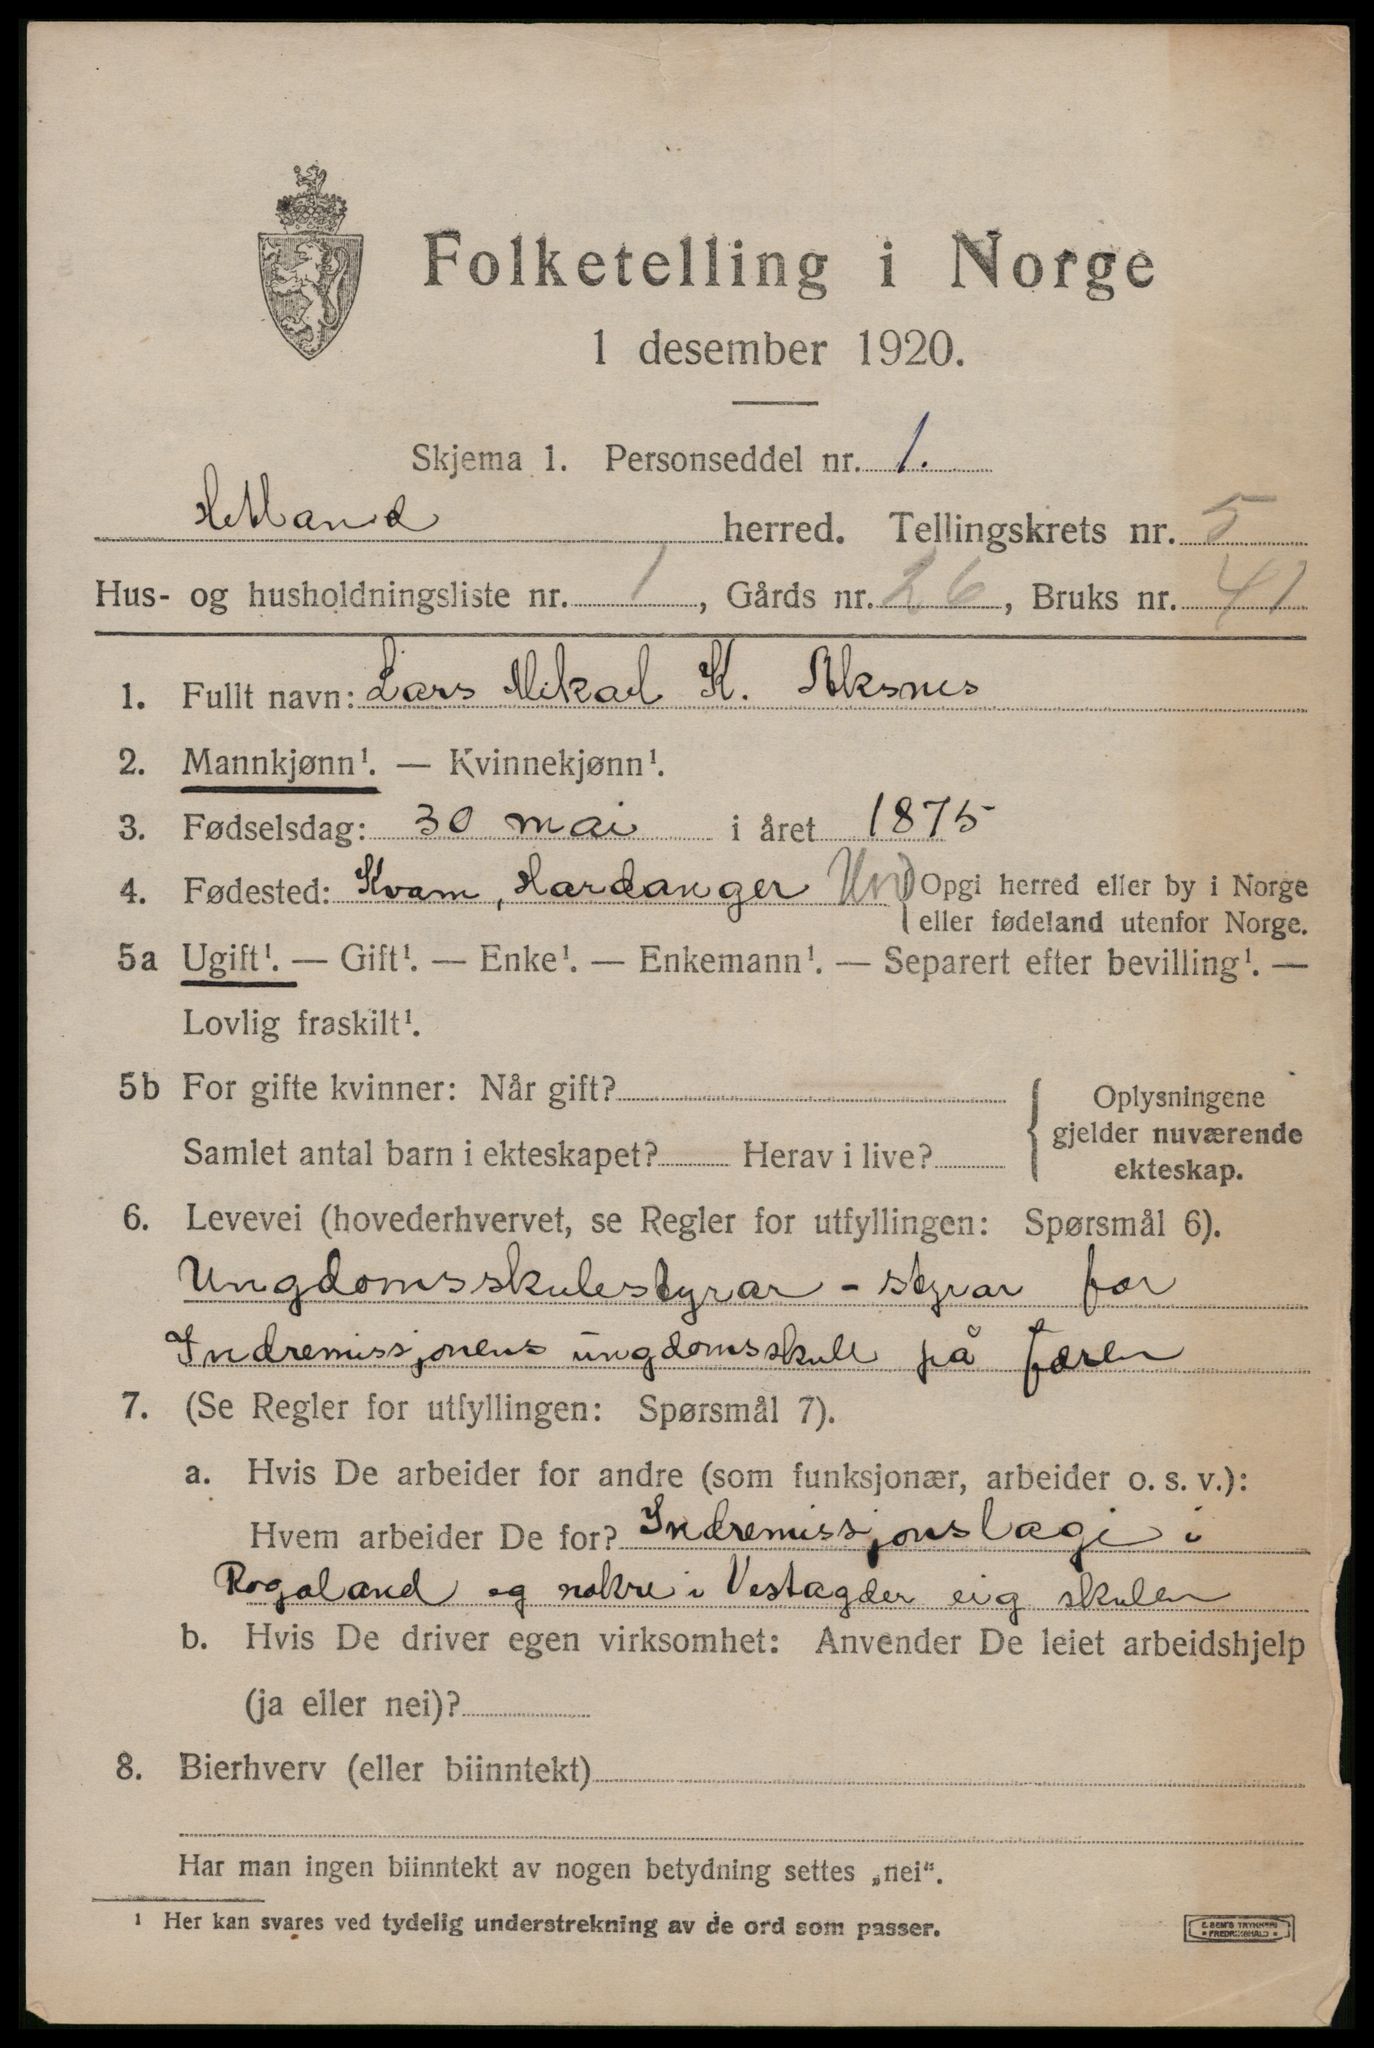 Folketelling i Norge
1 desember 1920.
Skjema 1. Personseddel nr. 1.
Hetland herred. Tellingskrets nr. 5
Hus- og husholdningsliste nr. 1, Gårds nr. 26, Bruks nr. 41
1. Fullt navn: Lars Mikael K. Aksnes
2. Mannkjønn¹. — Kvinnekjønn¹.
3. Fødselsdag: 30 mai i året 1875
4. Fødested: Kvam, Hardanger { Opgi herred eller by i Norge
eller fødeland utenfor Norge.
5a Ugift¹. — Gift¹. — Enke¹. — Enkemann¹. — Separert efter bevilling¹. —
Lovlig fraskilt¹.
5b For gifte kvinner: Når gift? { Oplysningene
gjelder nuværende
Samlet antal barn i ekteskapet? Herav i live? ekteskap.
6. Levevei (hovederhvervet, se Regler for utfyllingen: Spørsmål 6).
Ungdomsskulestyrar - styrar for
Indremissjonens ungdomsskule på Jæren
7. (Se Regler for utfyllingen: Spørsmål 7).
a. Hvis De arbeider for andre (som funksjonær, arbeider o. s. v.):
Hvem arbeider De for? Indremissjonslagi i
Rogaland og nokre i Vestagder eig skulen
b. Hvis De driver egen virksomhet: Anvender De leiet arbeidshjelp
(ja eller nei)?
8. Bierhverv (eller biinntekt)
Har man ingen biinntekt av nogen betydning settes „nei“.
¹ Her kan svares ved tydelig understrekning av de ord som passer.
E. SEM'S TRYKKERI
* FREDRIKSHALD *